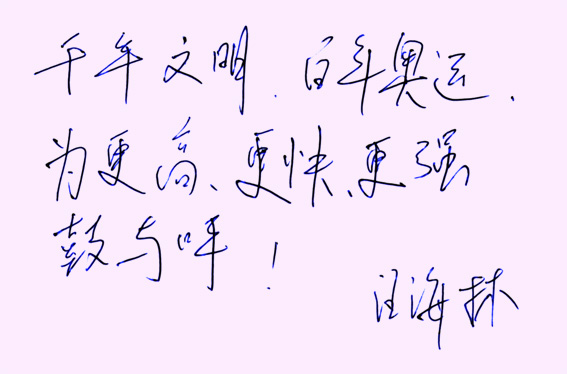 千年文明、百年奥运、
为更高、更快、更强
鼓与呼！
汪海林